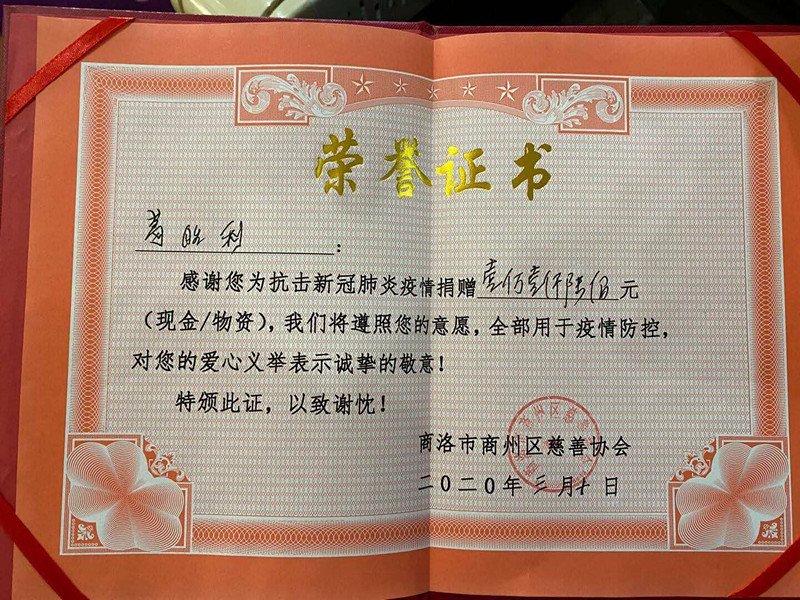 荣誉证书
胜利：
感谢您为抗击新冠肺炎疫情捐赠壹仟陆佰元
（现金/物资），我们将遵照您的意愿，全部用于疫情防控，
对您的爱心义举表示诚挚的敬意！
特颁此证，以致谢忱！
商洛市商州区慈善协会
二〇二〇年三月十日